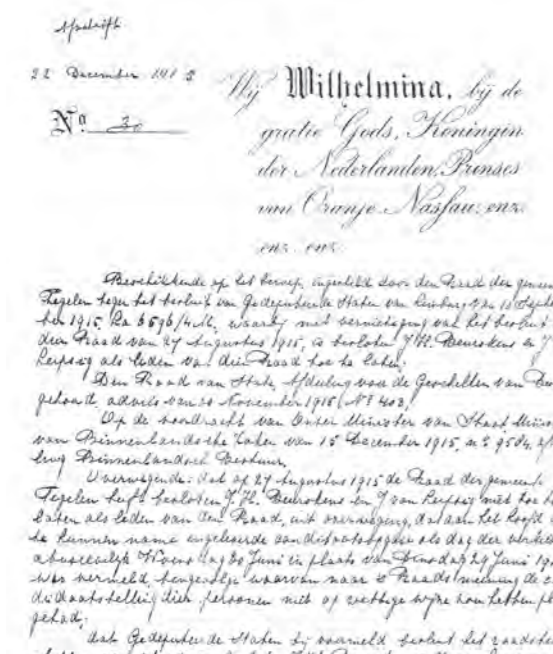 Afschrift
22 December 1915
Nº 30
Wij Wilhelmina, bij de
gratie Gods, Koningin
der Nederlanden, Prinses
van Oranje-Nassau, enz.
enz. enz.
Beschikkende op het beroep, ingesteld door den Raad der gemeen
Tegelen tegen het besluit van Gedeputeerde Staten van Limburg van 10 Septem
ber 1915, La 6596/4 M, waarbij met vernietiging van het besluit
dien Raad van 27 Augustus 1915, is besloten J.H. Beurskens en J
Leipsig als leden van dien Raad toe te laten;
Den Raad van State, Afdeeling voor de Geschillen van Be
gehoord, advies van 20 November 1915, Nº 403;
Op de voordracht van Onzen Minister van Staat Minis
van Binnenlandsche Zaken van 15 December 1915, nº 9584, a/
ling Binnenlandsch Bestuur;
Overwegende: dat op 27 Augustus 1915 de Raad der gemeent
Tegelen heeft besloten J.H. Beurskens en J van Leipsig niet toe te
laten als leden van den Raad, uit overweging, dat aan het hoofd
te hunnen name ingeleverde candidaatsopgave als dag der verkie
abusievelijk Woensdag 30 Juni in plaats van Dinsdag 29 Juni 19
was vermeld, tengevolge waarvan naar 's Raads meening de c
didaatstelling dier personen niet op wettige wijze zou hebben pl
gehad;
dat Gedeputeerde Staten bij voormeld besluit het raadsbe